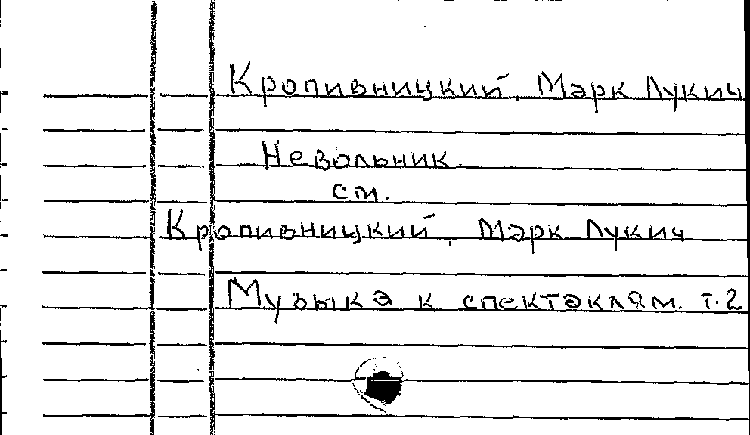 Кропивницкий, Марк Лукич
Невольник
см.
Кропивницкий, Марк Лукич
Музыка к спектаклям. т.2